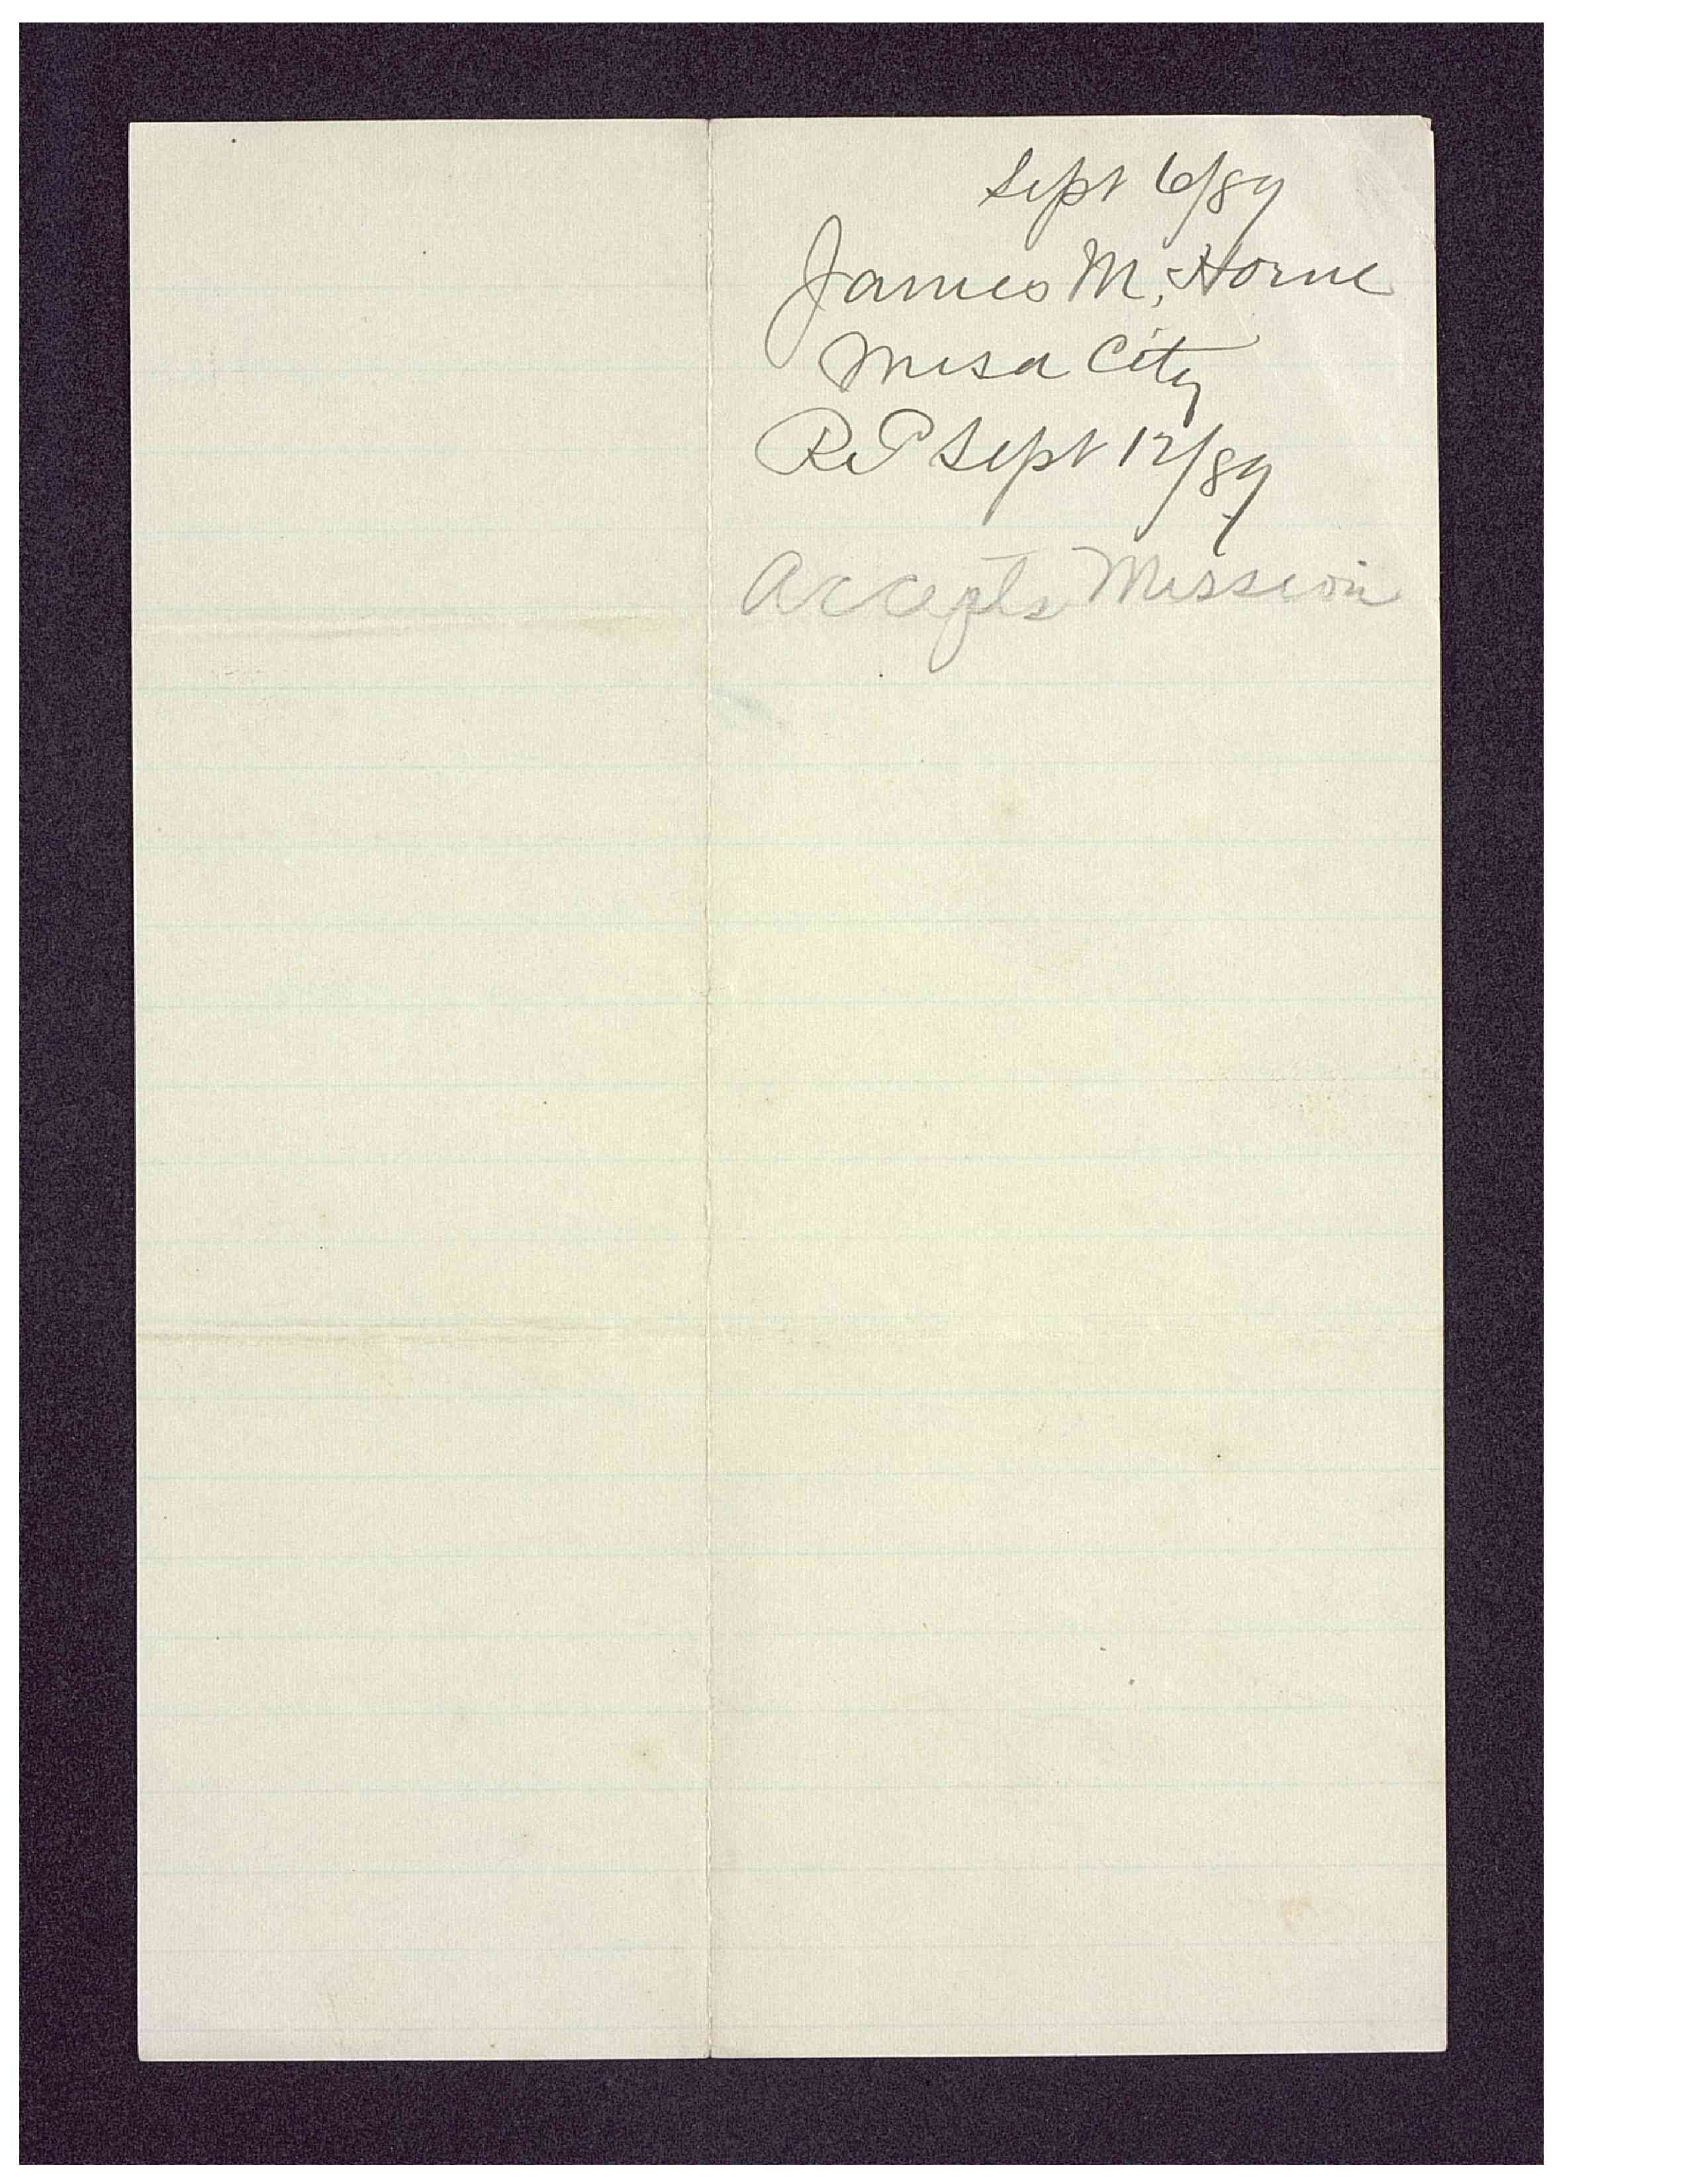 Sept 6/89
James M. Horne
Mesa City
Recd Sept 12/89
Accepts Mission